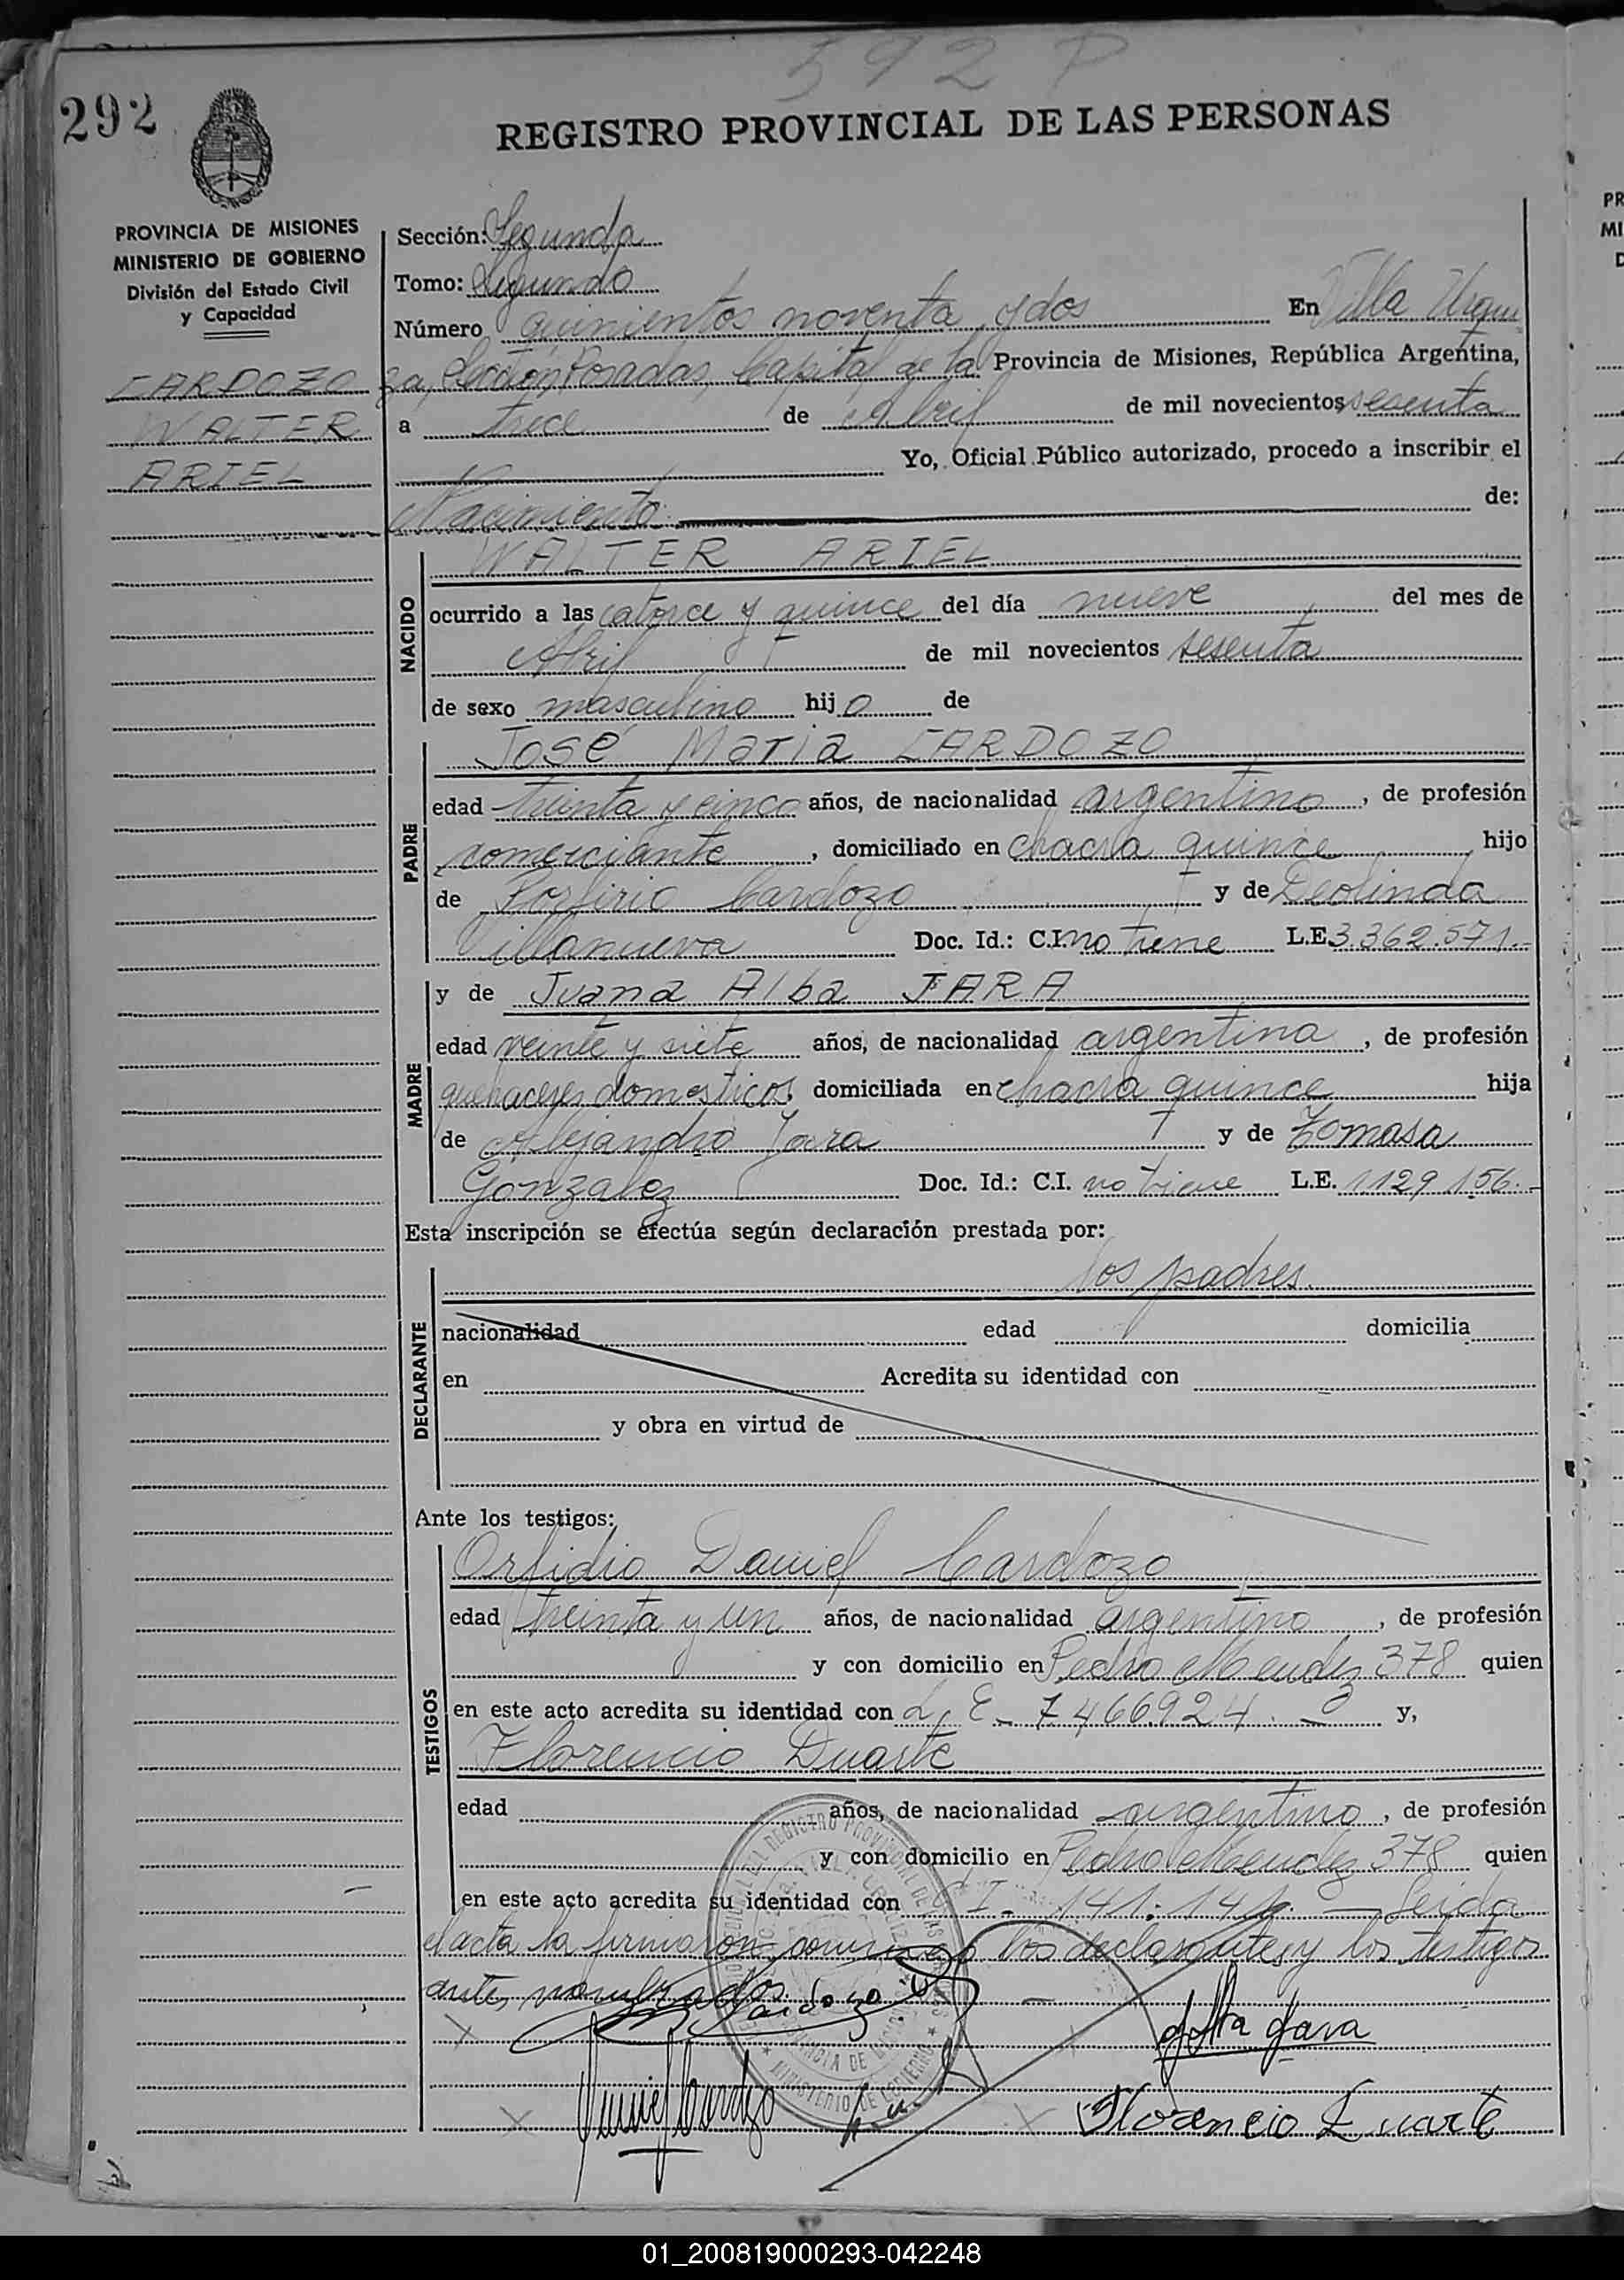 592 P
292
REGISTRO PROVINCIAL DE LAS PERSONAS
PROVINCIA DE MISIONES
MINISTERIO DE GOBIERNO
División del Estado Civil
y Capacidad
CARDOZO
WALTER
ARIEL
Sección: Segunda
Tomo: Segundo
Número quinientos noventa y dos En Villa Urqui
za, Sección Posadas, Capital de la Provincia de Misiones, República Argentina,
a trece de Abril de mil novecientos sesenta
Yo, Oficial Público autorizado, procedo a inscribir el
Nacimiento de:
NACIDO
WALTER ARIEL
ocurrido a las catorce y quince del día nueve del mes de
Abril de mil novecientos sesenta
de sexo masculino hijo de
PADRE
José Maria CARDOZO
edad treinta y cinco años, de nacionalidad argentino, de profesión
comerciante, domiciliado en chacra quince hijo
de Porfirio Cardozo y de Deolinda
Villanueva Doc. Id.: C.I. no tiene L.E. 3.362.571.-
MADRE
y de Juana Alba JARA
edad veinte y siete años, de nacionalidad argentina, de profesión
quehaceres domesticos, domiciliada en chacra quince hija
de Alejandro Jara y de Tomasa
Gonzalez Doc. Id.: C.I. no tiene L.E. 1.129.156.-
Esta inscripción se efectúa según declaración prestada por:
DECLARANTE
los padres.
nacionalidad edad domicilia
en Acredita su identidad con
y obra en virtud de
Ante los testigos:
TESTIGOS
Orfidio Daniel Cardozo
edad treinta y un años, de nacionalidad argentino, de profesión
y con domicilio en Pedro Mendez 378 quien
en este acto acredita su identidad con L. E - 7466924. - y,
Florencio Duarte
edad años, de nacionalidad argentino, de profesión
y con domicilio en Pedro Mendez 378 quien
en este acto acredita su identidad con C I - 141.141. - Leida
el acta la firmaron conmigo los declarantes y los testigos
antes nombrados. -
Cardozo
Alba Jara
Daniel Cardozo
Florencio Duarte
01_200819000293-042248